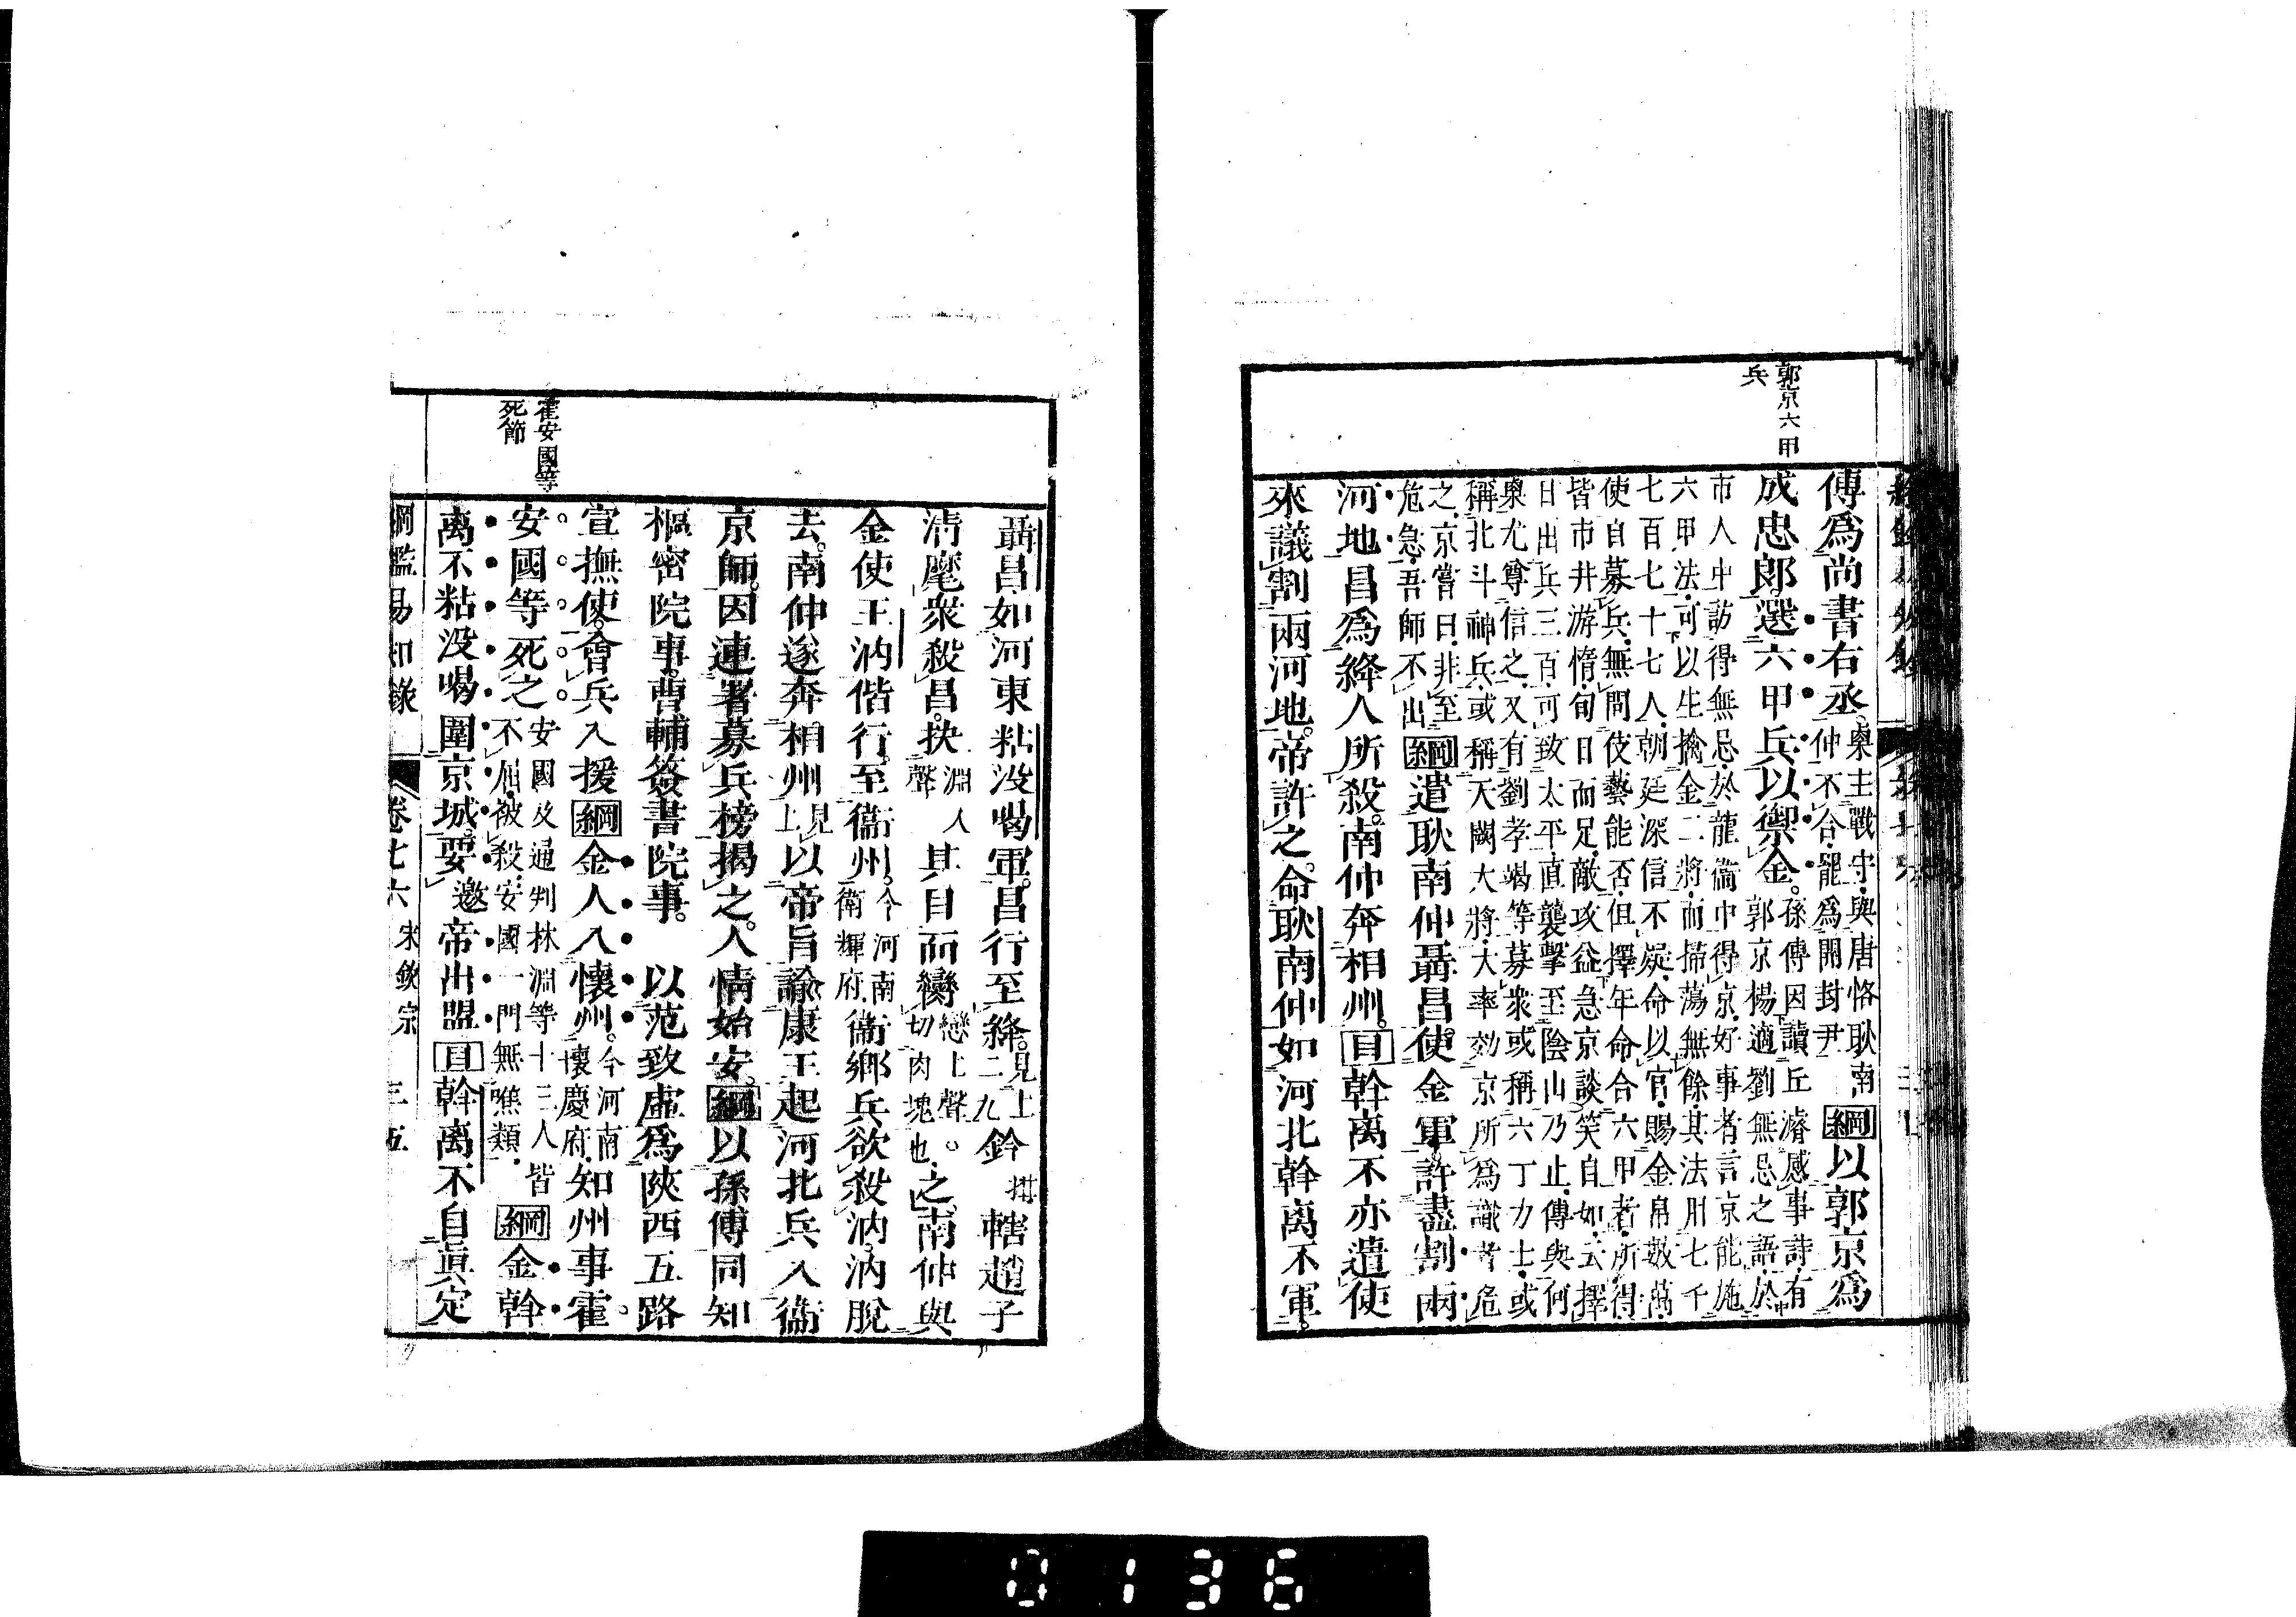 郭京六甲
兵
傅爲尚書右丞。㮚主戰守與唐恪耿南
仲不合罷爲開封尹綱以郭京爲
成忠郎選六甲兵以禦金。孫傅因讀丘濬感事詩有
郭京楊適劉無忌之語於
市人中訪得無忌於龍衞中得京好事者言京能施
六甲法可以生擒金二將而掃蕩無餘其法用七千
七百七十七人朝廷深信不疑命以官賜金帛數萬
使自募兵無問伎藝能否但擇年命合六甲者所得
皆市井游惰旬日而足敵攻益急京談笑自如云擇
日出兵三百可致太平直襲擊至陰山乃止傅與何
㮚尤尊信之又有劉孝竭等募衆或稱六丁力士或
稱北斗神兵或稱天闕大將大率効京所爲識者危
之京嘗曰非至
危急吾師不出綱遣耿南仲聶昌使金軍許盡割兩
河地昌爲絳人所殺。南仲奔相州。目斡离不亦遣使
來議割兩河地。帝許之命耿南仲如河北斡离不軍。
聶昌如河東粘没喝軍。昌行至絳。見上二九鈐拑轄趙子
清麾衆殺昌。抉淵入聲其目而臠戀上聲。切肉塊也之。南仲與
金使王汭偕行。至衞州。今河南衛輝府衞鄉兵欲殺汭。汭脫
去。南仲遂奔相州。見上以帝旨諭康王起河北兵入衞
京師。因連署募兵榜揭之。人情始安。綱以孫傅同知
樞密院事。曹輔簽書院事。以范致虛爲陝西五路
宣撫使。會兵入援綱金人入懷州。今河南懷慶府知州事霍
安國等死之安國及通判林淵等十三人皆不屈被殺安國一門無噍類綱金斡
离不粘没喝圍京城。要邀帝出盟目斡离不自真定
霍安國等
死節
綱鑑易知錄 卷七六 宋欽宗 三五